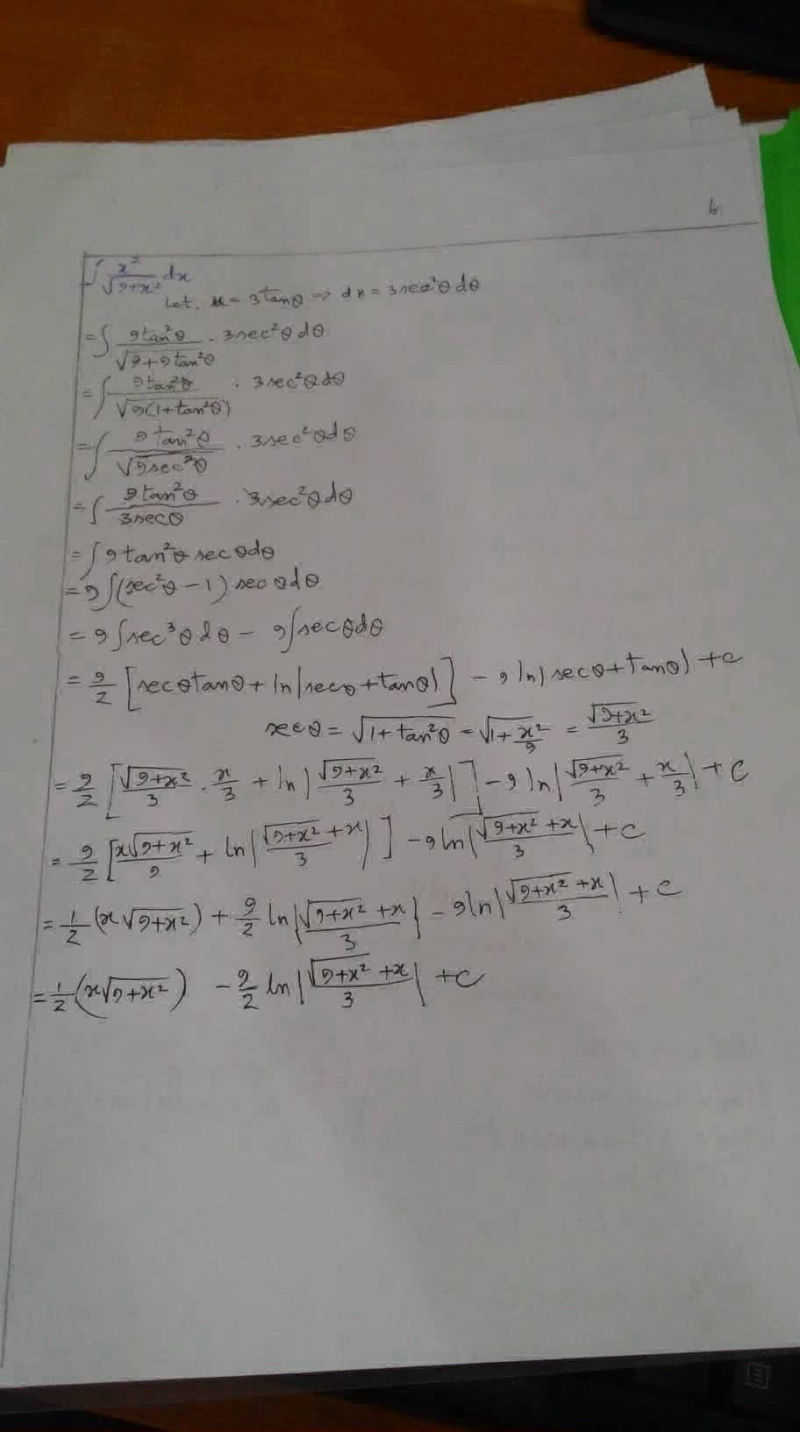 4
∫ x²/√(9+x²) dx
Let, x = 3tanθ ⇒ dx = 3sec²θ dθ
= ∫ 9tan²θ/√(9+9tan²θ) · 3sec²θ dθ
= ∫ 9tan²θ/√(9(1+tan²θ)) · 3sec²θ dθ
= ∫ 9tan²θ/√(9sec²θ) · 3sec²θ dθ
= ∫ 9tan²θ/3secθ · 3sec²θ dθ
= ∫ 9tan²θ secθ dθ
= 9∫(sec²θ − 1) secθ dθ
= 9∫sec³θ dθ − 9∫secθ dθ
= 9/2 [secθtanθ + ln|secθ+tanθ|] − 9 ln|secθ+tanθ| + c
secθ = √(1+tan²θ) = √(1+x²/9) = √(9+x²)/3
= 9/2 [√(9+x²)/3 · x/3 + ln|√(9+x²)/3 + x/3|] − 9 ln|√(9+x²)/3 + x/3| + c
= 9/2 [x√(9+x²)/9 + ln|(√(9+x²)+x)/3|] − 9ln|(√(9+x²)+x)/3| + c
= 1/2 (x√(9+x²)) + 9/2 ln|(√(9+x²)+x)/3| − 9ln|(√(9+x²)+x)/3| + c
= 1/2 (x√(9+x²)) − 9/2 ln|(√(9+x²)+x)/3| + c